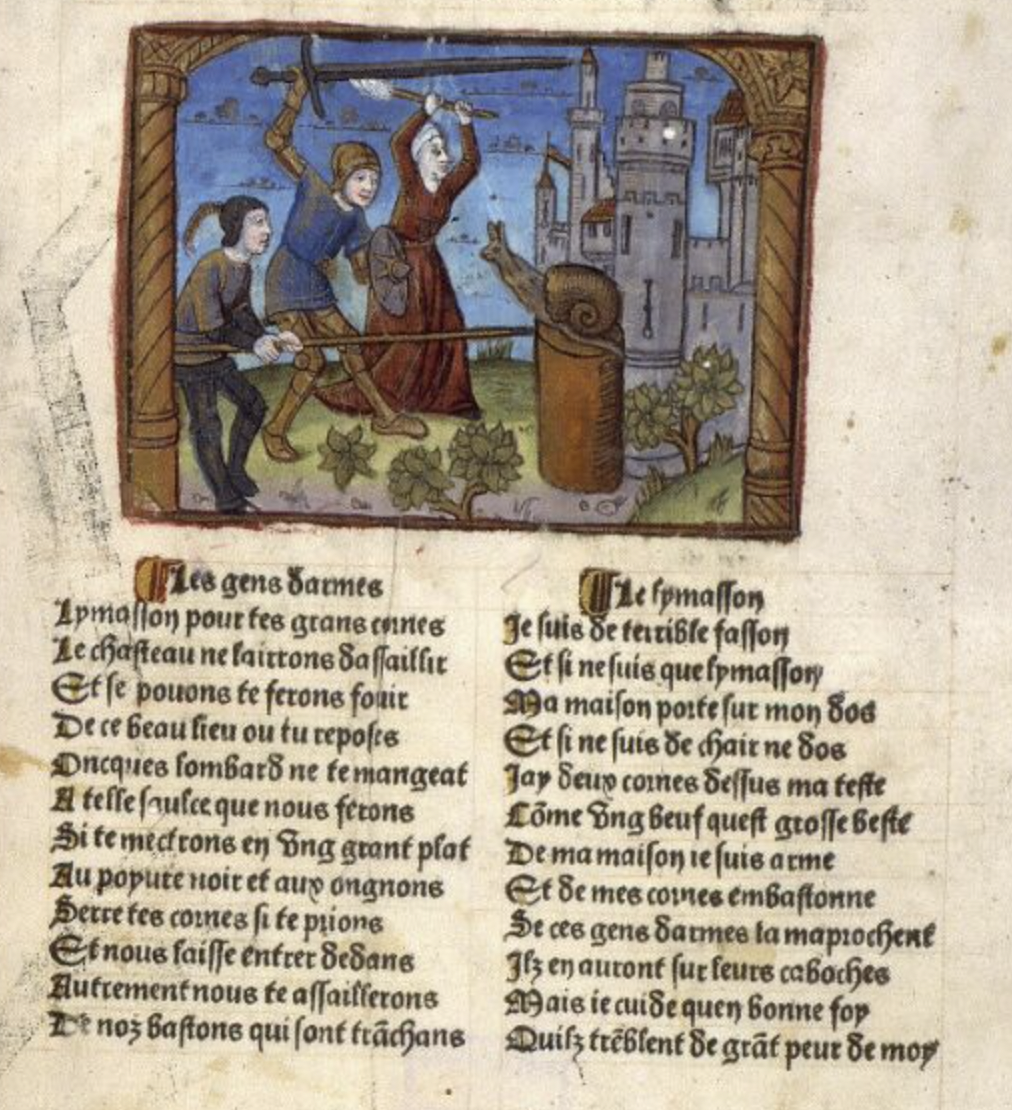 Les gens darmes
Lymasson pour tes grans cornes
Le chasteau ne lairrons dassaillir
Et se pouons te ferons fouir
De ce beau lieu ou tu reposes
Oncques lombard ne te mangeat
A telle saulce que nous ferons
Si te mectrons en vng grant plat
Au poyure noir et aux ongnons
Serre tes cornes si te prions
Et nous laisse entrer dedans
Autrement nous te assaillerons
De noz bastons qui sont trãchans
Le lymasson
Je suis de terrible fasson
Et si ne suis que lymasson
Ma maison porte sur mon dos
Et si ne suis de chair ne dos
Jay deux cornes dessus ma teste
Cõme vng beuf quest grosse beste
De ma maison ie suis arme
Et de mes cornes embastonne
Se ces gens darmes la maprochent
Ilz en auront sur leurs caboches
Mais ie cuide quen bonne foy
Quilz trẽblent de grãt peur de moy